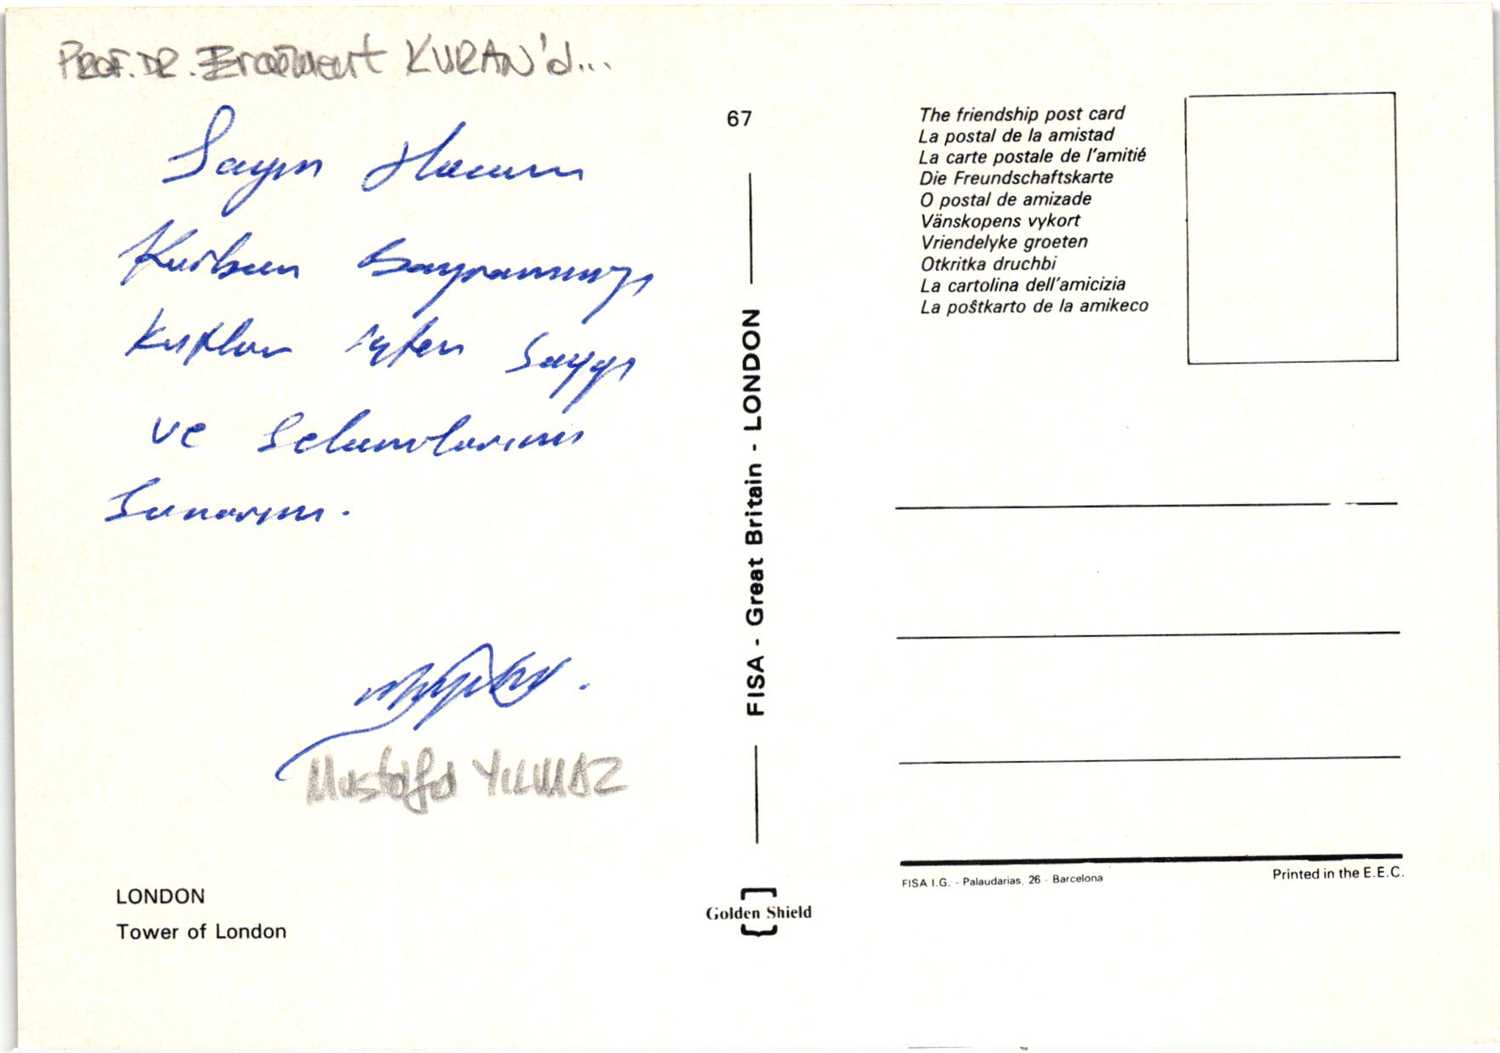 PROF. DR. Ercüment KURAN'd...
Sayın Hocam
Kurban Bayramınızı
kutlar içten saygı
ve selamlarımı
sunarım.
Mustafa YILMAZ
LONDON
Tower of London
67
FISA - Great Britain - LONDON
Golden Shield
The friendship post card
La postal de la amistad
La carte postale de l'amitié
Die Freundschaftskarte
O postal de amizade
Vänskopens vykort
Vriendelyke groeten
Otkritka druchbi
La cartolina dell'amicizia
La poŝtkarto de la amikeco
FISA I.G. - Palaudarias, 26 - Barcelona
Printed in the E.E.C.